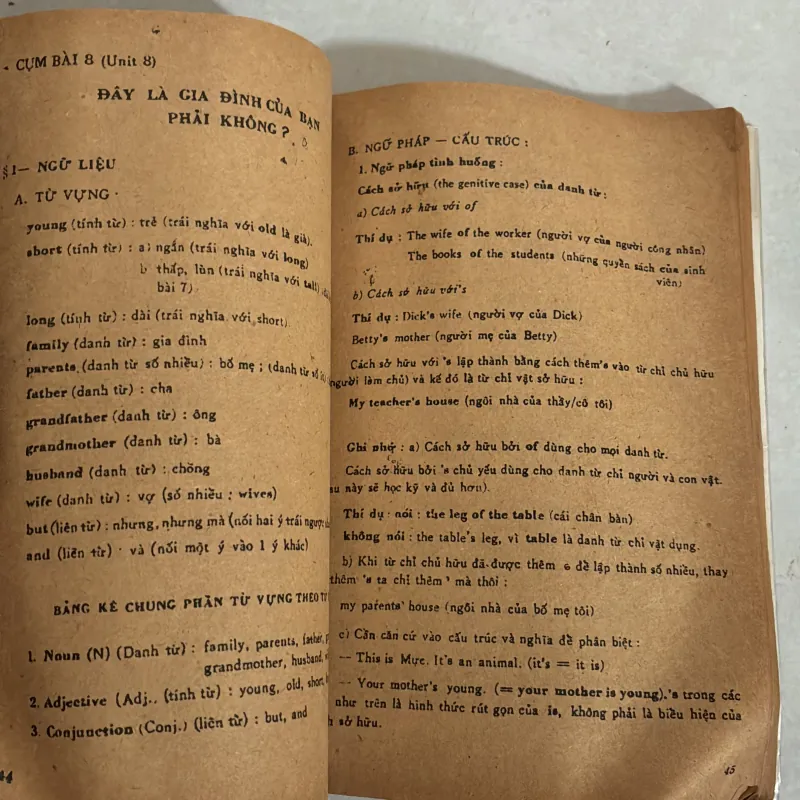 CỤM BÀI 8 (Unit 8)
ĐÂY LÀ GIA ĐÌNH CỦA BẠN
PHẢI KHÔNG?
§I— NGỮ LIỆU
A. TỪ VỰNG
young (tính từ) : trẻ (trái nghĩa với old là già).
short (tính từ) : a) ngắn (trái nghĩa với long)
b thấp, lùn (trái nghĩa với tall)
bài 7)
long (tính từ) : dài (trái nghĩa với short).
family (danh từ) : gia đình
parents (danh từ số nhiều) : bố mẹ ; (danh từ số
father (danh từ) : cha
grandfather (danh từ) : ông
grandmother (danh từ) : bà
husband (danh từ) : chồng
wife (danh từ) : vợ (số nhiều : wives)
but (liên từ) : nhưng, nhưng mà (nối hai ý trái ngược
and (liên từ) · và (nối một ý vào 1 ý khác)
BẢNG KÊ CHUNG PHẦN TỪ VỰNG THEO TỪ
1. Noun (N) (Danh từ) : family, parents, father,
grandmother, husband,
2. Adjective (Adj., (tính từ) : young, old, short,
3. Conjunction (Conj.) (liên từ) : but, and
44
B. NGỮ PHÁP — CẤU TRÚC :
1. Ngữ pháp tình huống :
Cách sở hữu (the genitive case) của danh từ :
a) Cách sở hữu với of
Thí dụ : The wife of the worker (người vợ của người công nhân)
The books of the students (những quyển sách của sinh
viên)
b) Cách sở hữu với 's
Thí dụ : Dick's wife (người vợ của Dick)
Betty's mother (người mẹ của Betty)
Cách sở hữu với 's lập thành bằng cách thêm 's vào từ chỉ chủ hữu
người làm chủ) và kế đó là từ chỉ vật sở hữu :
My teacher's house (ngôi nhà của thầy/cô tôi)
Ghi nhớ : a) Cách sở hữu bởi of dùng cho mọi danh từ.
Cách sở hữu bởi 's chủ yếu dùng cho danh từ chỉ người và con vật.
su này sẽ học kỹ và đủ hơn).
Thí dụ · nói : the leg of the table (cái chân bàn)
không nói : the table's leg, vì table là danh từ chỉ vật dụng.
b) Khi từ chỉ chủ hữu đã được thêm s để lập thành số nhiều, thay
thêm 's ta chỉ thêm ' mà thôi :
my parents' house (ngôi nhà của bố mẹ tôi)
c) Cần căn cứ vào cấu trúc và nghĩa để phân biệt :
— This is Mực. It's an animal. (it's = it is)
— Your mother's young. (= your mother is young).'s trong các
như trên là hình thức rút gọn của is, không phải là biểu hiện của
sở hữu.
45